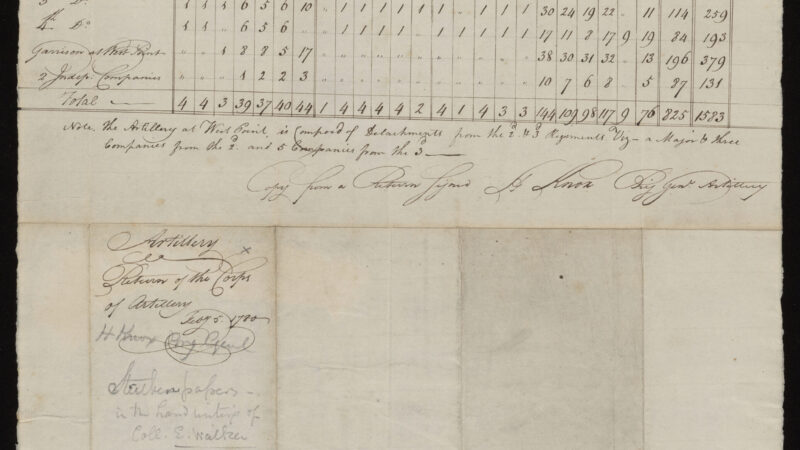 3 Do. 1 1 1 6 5 6 10 1 1 1 1 1 1 30 24 19 22 " 11 114 259
4 Do. 1 1 1 6 5 6 " 1 1 1 1 1 1 1 1 1 17 11 8 17 9 19 84 193
Garrison at West Point " " 1 8 8 5 17 38 30 31 32 " 13 196 379
2 Indep. Companies " " " 1 2 2 3 10 7 6 8 " 5 87 131
Total 4 4 3 39 37 40 44 1 4 4 4 4 2 4 1 4 3 3 144 109 98 117 9 76 825 1583
Note, the Artillery at West Point, is Compos'd of Detachments from the 2d. & 3d Regements Viz - a Major & three
Companies from the 2d. and 5 Companies from the 3d.
Copy from a Return Signd H Knox Brig Genl. Artillery
Artillery x
Return of the Corps
of Artillery
Feby 5. 1780
H Knox Brig Genl
Steuben papers -
in the handwriting of
Coll. E. Walker